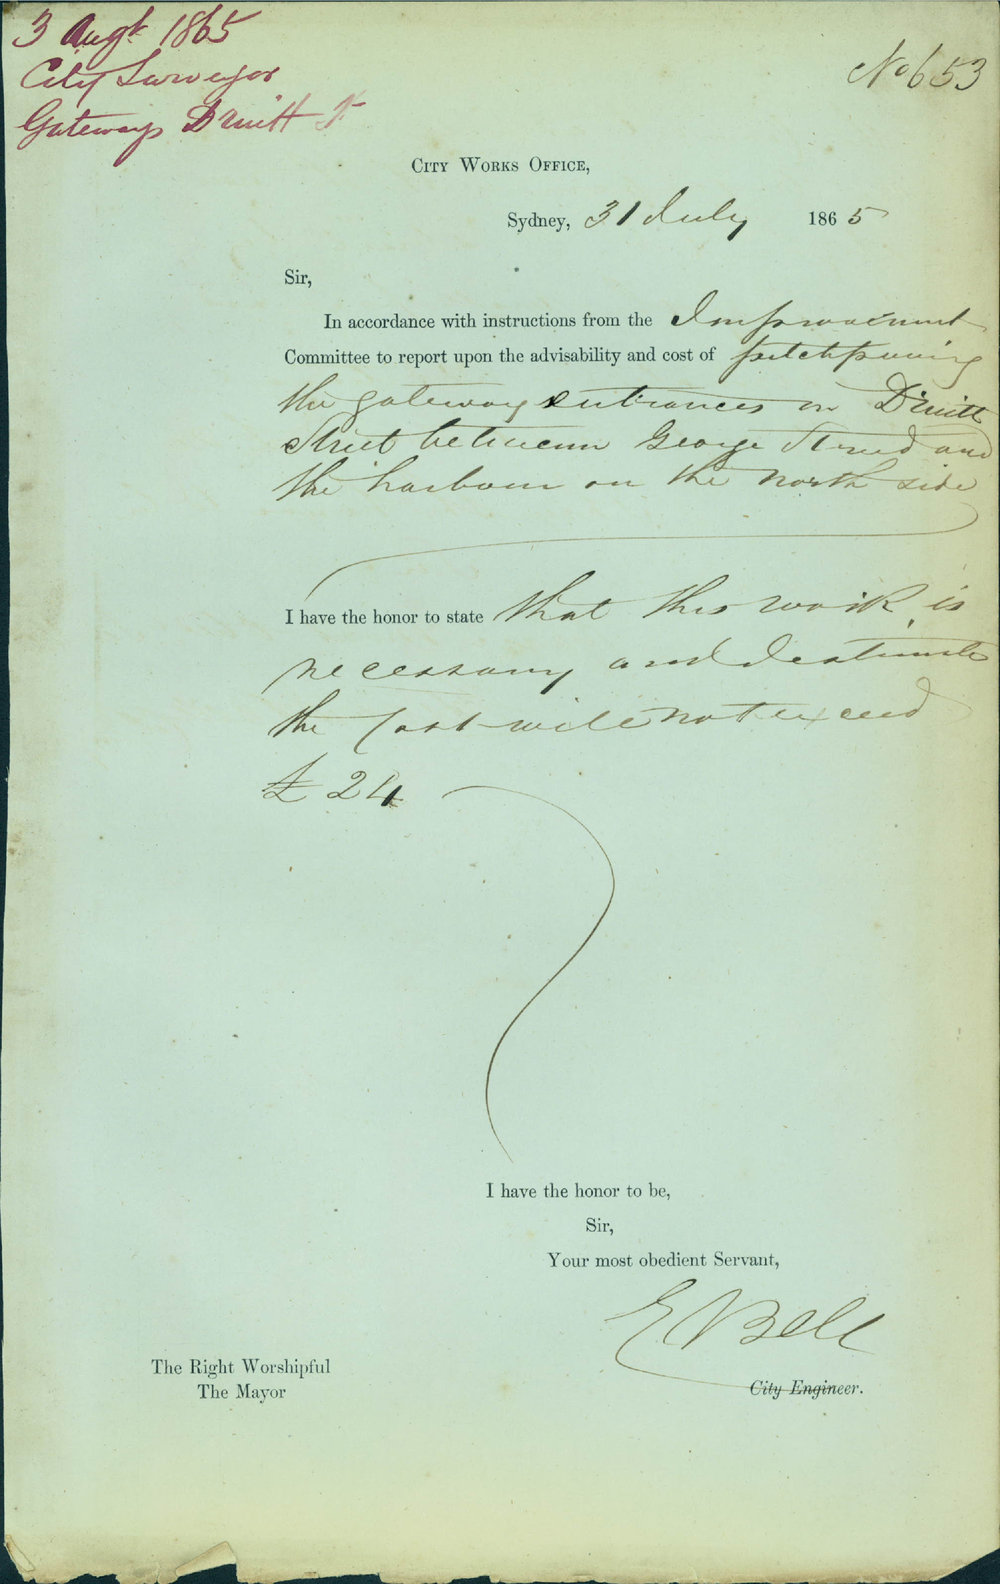 3 Augt 1865
City Surveyor
Gateways Druitt St
No 653
City Works Office,
Sydney, 31 July 1865
Sir,
In accordance with instructions from the Improvement
Committee to report upon the advisability and cost of pitchpaving
the gateway entrances on Druitt
Street between George Street and
the harbour on the North side
I have the honor to state that this work is
necessary and I estimate
the Cost will not exceed
£24
I have the honor to be,
Sir,
Your most obedient Servant,
E Bell
City Engineer.
The Right Worshipful
The Mayor